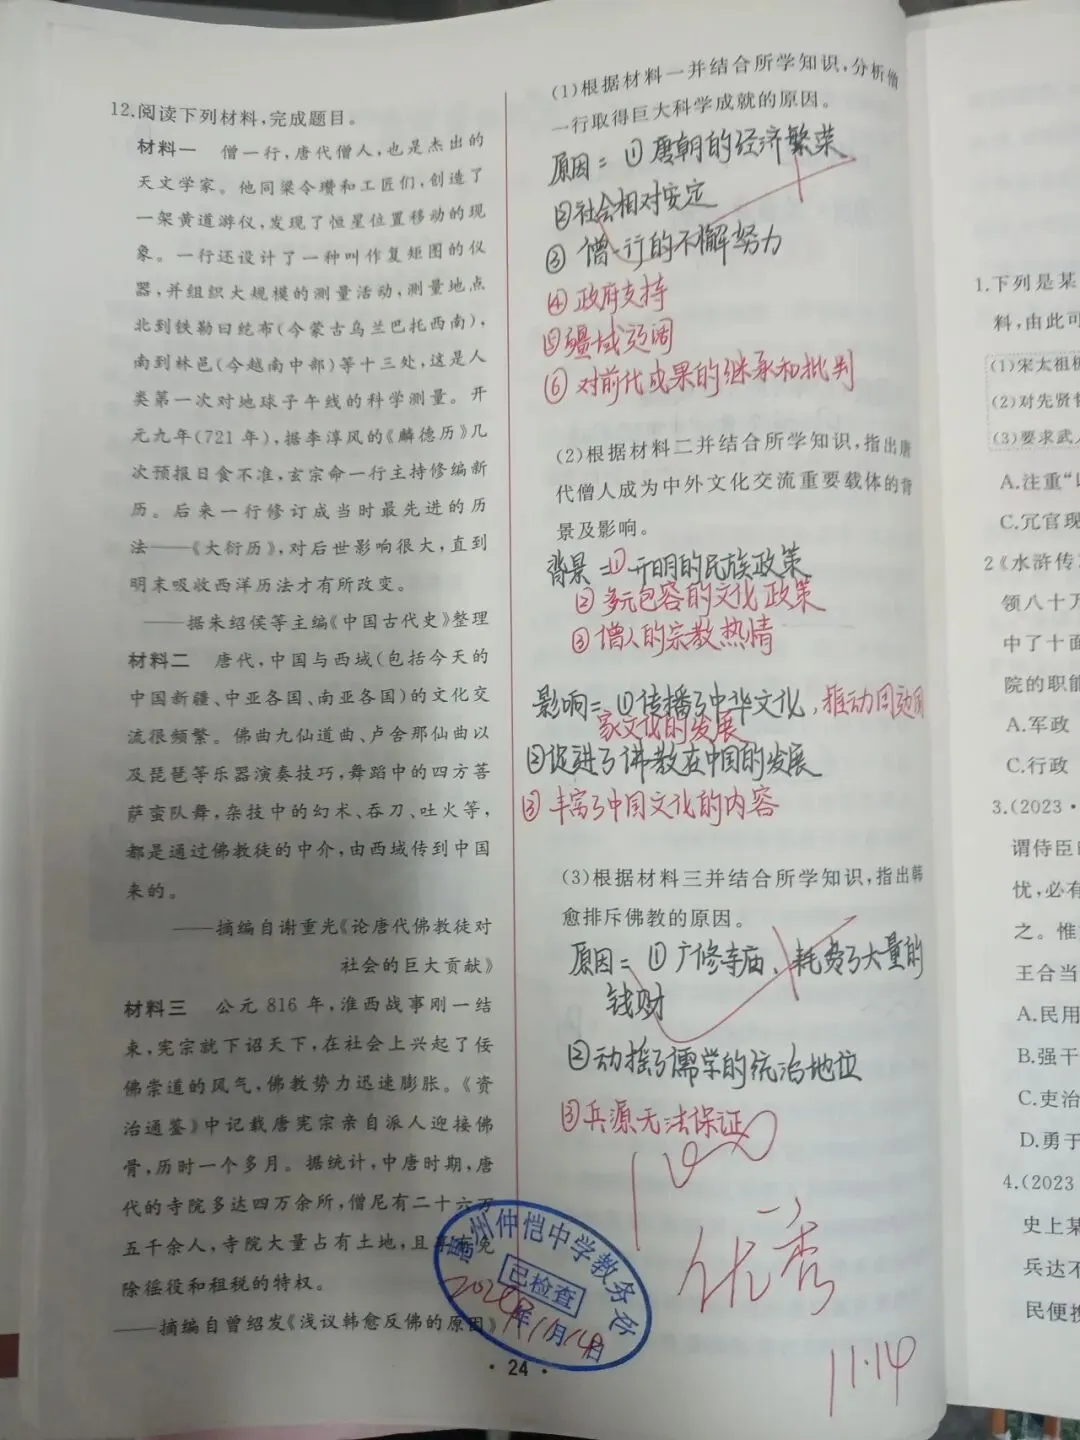 12.阅读下列材料,完成题目。
材料一 僧一行,唐代僧人,也是杰出的
天文学家。他同梁令瓒和工匠们,创造了
一架黄道游仪,发现了恒星位置移动的现
象。一行还设计了一种叫作复矩图的仪
器,并组织大规模的测量活动,测量地点
北到铁勒回纥布(今蒙古乌兰巴托西南),
南到林邑(今越南中部)等十三处,这是人
类第一次对地球子午线的科学测量。开
元九年(721年),据李淳风的《麟德历》几
次预报日食不准,玄宗命一行主持修编新
历。后来一行修订成当时最先进的历
法——《大衍历》,对后世影响很大,直到
明末吸收西洋历法才有所改变。
——据朱绍侯等主编《中国古代史》整理
材料二 唐代,中国与西域(包括今天的
中国新疆、中亚各国、南亚各国)的文化交
流很频繁。佛曲九仙道曲、卢舍那仙曲以
及琵琶等乐器演奏技巧,舞蹈中的四方菩
萨蛮队舞,杂技中的幻术、吞刀、吐火等,
都是通过佛教徒的中介,由西域传到中国
来的。
——摘编自谢重光《论唐代佛教徒对
社会的巨大贡献》
材料三 公元816年,淮西战事刚一结
束,宪宗就下诏天下,在社会上兴起了佞
佛崇道的风气,佛教势力迅速膨胀。《资
治通鉴》中记载唐宪宗亲自派人迎接佛
骨,历时一个多月。据统计,中唐时期,唐
代的寺院多达四万余所,僧尼有二十六万
五千余人,寺院大量占有土地,且享有免
除徭役和租税的特权。
——摘编自曾绍发《浅议韩愈反佛的原因》
(1)根据材料一并结合所学知识,分析僧
一行取得巨大科学成就的原因。
原因=①唐朝的经济繁荣
②社会相对安定
③僧一行的不懈努力
④政府支持
⑤疆域辽阔
⑥对前代成果的继承和批判
(2)根据材料二并结合所学知识,指出唐
代僧人成为中外文化交流重要载体的背
景及影响。
背景=①开明的民族政策
②多元包容的文化政策
③僧人的宗教热情
影响=①传播了中华文化,推动周边国
家文化的发展
②促进了佛教在中国的发展
③丰富了中国文化的内容
(3)根据材料三并结合所学知识,指出韩
愈排斥佛教的原因。
原因=①广修寺庙、耗费了大量的
钱财
②动摇了儒学的统治地位
③兵源无法保证
优秀
11.14
州仲恺中学教务会
已检查
年11月14日
·24·
1.下列是某
料,由此可
(1)宋太祖极
(2)对先贤
(3)要求武人
A.注重
C.冗官现
2《水浒传
领八十万
中了十面
院的职能
A.军政
C.行政
3.(2023·
谓侍臣曰
忧,必有
之。惟
王合当
A.民用
B.强干
C.吏治
D.勇于
4.(2023
史上某
兵达不
民便